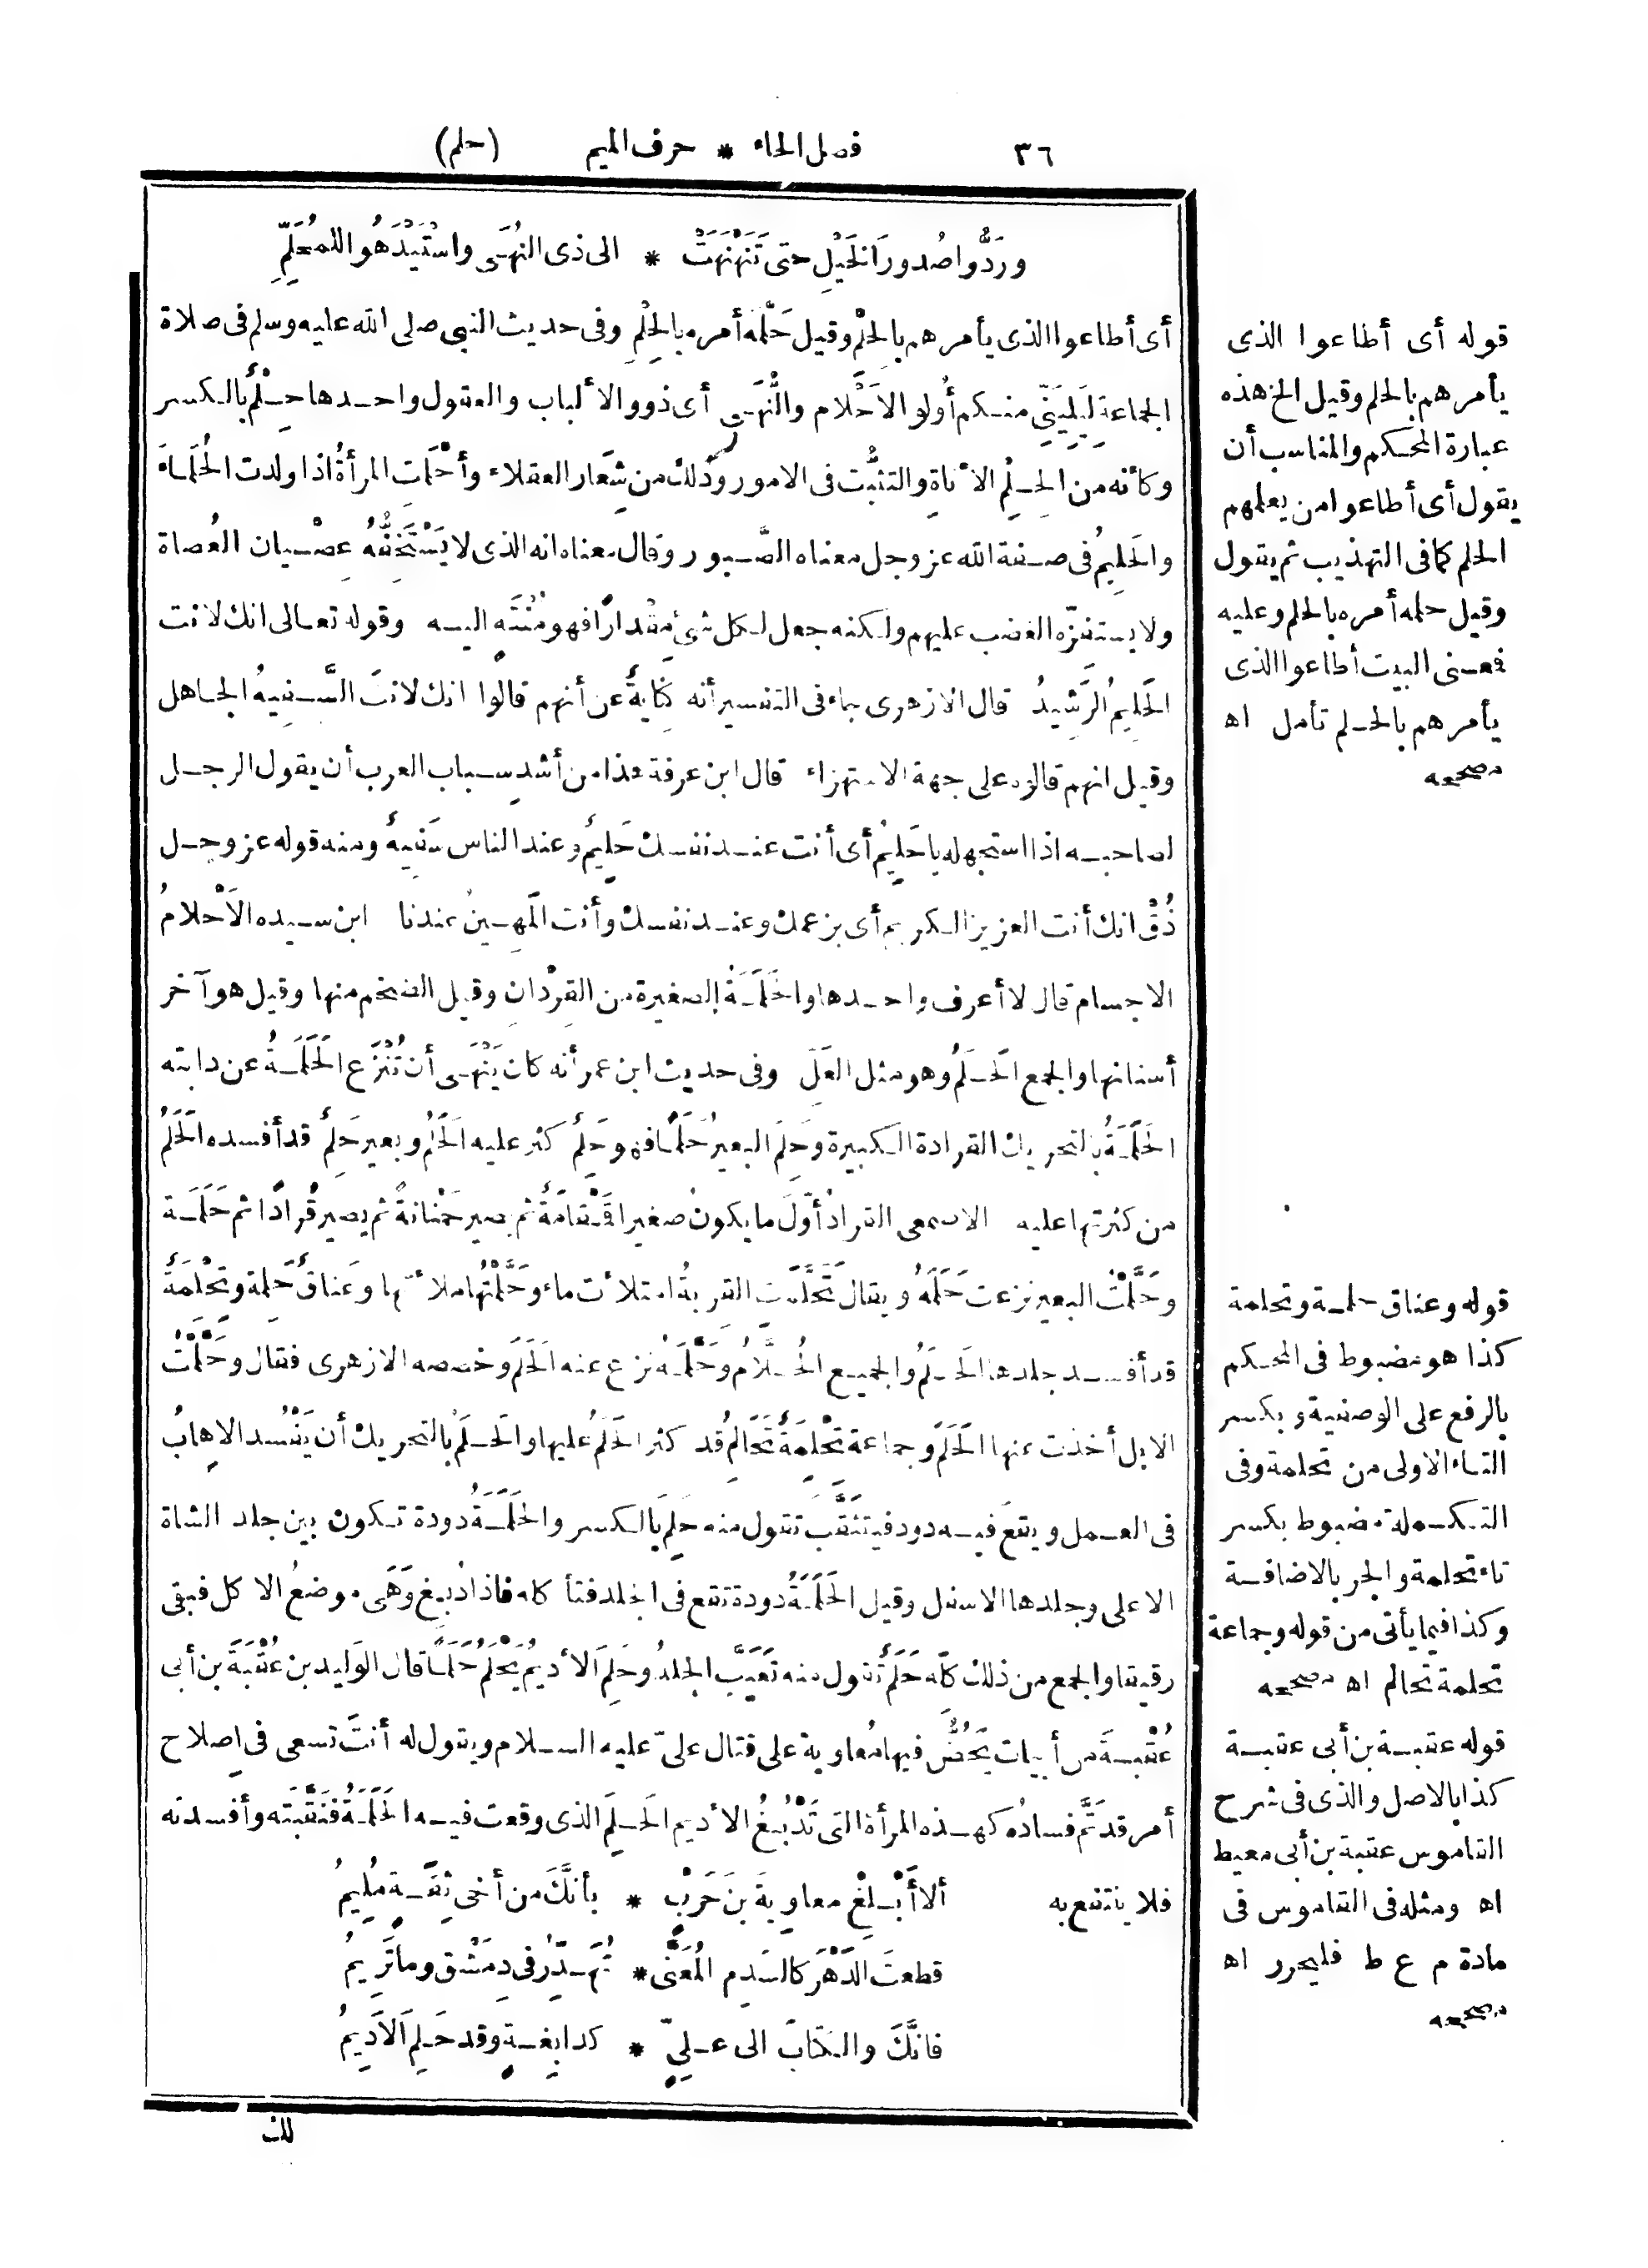 ٣٦ فصل الحاء * حرف الميم (حلم)
ورَدُّوا صُدورَ الخَيْلِ حتى تَنَهْنَهَتْ * الى ذى النُهَى واسْتَيْدَهُوا للمُحَلِّمِ
أى أطاعوا الذى يأمرهم بالحِلْم وقيل حَلَّمَه أمره بالحِلْمِ وفى حديث النبى صلى الله عليه وسلم فى صلاة
الجماعةِ لِيَلِيَنِّى منكم أُولو الاَحْلام والنُّهَى أى ذوو الألباب والعقول واحدها حِلْمٌ بالكسر
وكأنه من الحِلْمِ الأناةِ والتثبُّت فى الامور وذلك من شِعَار العقلاء وأَحْلَمَتِ المرأةُ اذا ولدت الحُلَماءَ
والحَلِيمُ فى صفة الله عز وجل معناه الصَّبور وقال معناه انه الذى لا يَسْتَخِفُّهُ عِصْيان العُصاة
ولا يستفزّه الغضب عليهم ولكنه جعل لكل شئٍ مِقْدارًا فهو مُنْتَهٍ اليه وقوله تعالى انك لانت
الحَلِيمُ الرَشِيدُ قال الازهرى جاء فى التفسير أنه كِنايةٌ عن أنهم قالوا انك لانتَ السَّفِيهُ الجاهل
وقيل انهم قالوه على جهة الاستهزاء قال ابن عرفة هذا من أشدِ سِباب العرب أن يقول الرجل
لصاحبه اذا استجهله يا حَلِيمُ أى أنت عند نفسك حَلِيمٌ وعند الناس سَفِيهٌ ومنه قوله عز وجل
ذُقْ انك أنت العزيز الكريم أى بزعمك وعند نفسك وأنت المَهِينُ عندنا ابن سيده الاَحْلامُ
الاجسام قال لا أعرف واحدها والحَلَمَةُ الصغيرة من القِرْدانِ وقيل الضخم منها وقيل هو آخر
أسنانها والجمع الحَلَمُ وهو مثل العَلِّ وفى حديث ابن عمر أنه كان يَنْهَى أن تُنْزَع الحَلَمَةُ عن دابته
الحَلَمَةُ بالتحريك القرادة الكبيرة وحَلِمَ البعيرُ حَلَمًا فهو حَلِمٌ كثر عليه الحَلَمُ وبعير حَلِمٌ قد أفسده الحَلَمُ
من كثرتها عليه الاصمعى القراد أَوّلَ ما يكونُ صغيرا قَمْقامَةٌ ثم يصير حَمْنانةً ثم يصير قُرادًا ثم حَلَمَة
وحَلَّمْتُ البعير نزعت حَلَمَهُ ويقال تَحَلَّمَتِ القربةُ امتلأت ماء وحَلَّمْتُها ملأتها وعَناقٌ حَلِمة وتِحْلِمَةٌ
قد أفسد جلدها الحَلَمُ والجميع الحُلَّامُ وحَلَّمَهُ نزع عنه الحَلَمَ وخصصه الازهرى فقال وحَلَّمْتُ
الابل أخذت عنها الحَلَمَ وجماعة تِحْلِمَةٌ تَحالِمُ قد كثر الحَلَمُ عليها والحَلَمُ بالتحريك أن يَفْسُد الاِهابُ
فى العمل ويقعَ فيه دود فيتثَقَّبَ تقول منه حَلِمَ بالكسر والحَلَمَةُ دودة تكون بين جلد الشاة
الاعلى وجلدها الاسفل وقيل الحَلَمَةُ دودة تقع فى الجلد فتأكله فاذا دُبِغ وَهَى موضعُ الاكل فبقى
رقيقا والجمع من ذلك كلّه حَلَمٌ تقول منه تَعَيَّبَ الجلدُ وحَلِمَ الأديمُ يَحْلَمُ حَلَمًا قال الوَليد بن عُقْبَةَ بن أبى
عُقْبةَ من أبيات يَحُضُّ فيها مُعاوية على قتال علىّ عليه السلام ويقول له أنتَ تسعى فى اِصلاح
أمر قد تَمَّ فسادُه كهذه المرأة التى تَدْبُغُ الأديم الحَلِمَ الذى وقعت فيه الحَلَمَةُ فنَقَّبَته وأفسدته
فلا ينتفع به ألا أَبْلِغْ معاوِيةَ بنَ حَرْبٍ * بأنَّكَ من أخى ثِقَةٍ مُلِيمُ
قطعتَ الدَّهْرَ كالسَدِمِ المُعَنَّى * تُهَدِّرُ فى دِمَشْق وما تَرِيمُ
فانَّكَ والكتابَ الى علىٍّ * كدابِغةٍ وقد حَلِمَ الاَدِيمُ
لك
قوله أى أطاعوا الذى
يأمرهم بالحلم وقيل الخ هذه
عبارة المحكم والمناسب أن
يقول أى أطاعوا من يعلمهم
الحلم كما فى التهذيب ثم يقول
وقيل حلمه أمره بالحلم وعليه
فمعنى البيت أطاعوا الذى
يأمرهم بالحلم تأمل اه
مصححه
قوله وعناق حلمة وتحلمة
كذا هو مضبوط فى المحكم
بالرفع على الوصفية وبكسر
التاء الاولى من تحلمة وفى
التكملة مضبوط بكسر
تاء تحلمة والجر بالاضافة
وكذا فيما يأتى من قوله وجماعة
تحلمة تحالم اه مصححه
قوله عقبة بن أبى عقبة
كذا بالاصل والذى فى شرح
القاموس عقبة بن أبى معيط
اه ومثله فى القاموس فى
مادة م ع ط فليحرر اه
مصححه